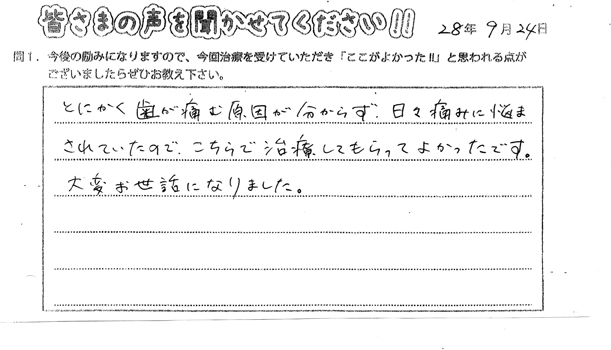 皆さまの声を聞かせてください!! 28年 9月 24日
問1．今後の励みになりますので、今回治療を受けていただき「ここがよかった!!」と思われる点が
ございましたらぜひお教え下さい。
とにかく歯が痛む原因が分からず、日々痛みに悩ま
されていたので、こちらで治療してもらってよかったです。
大変お世話になりました。